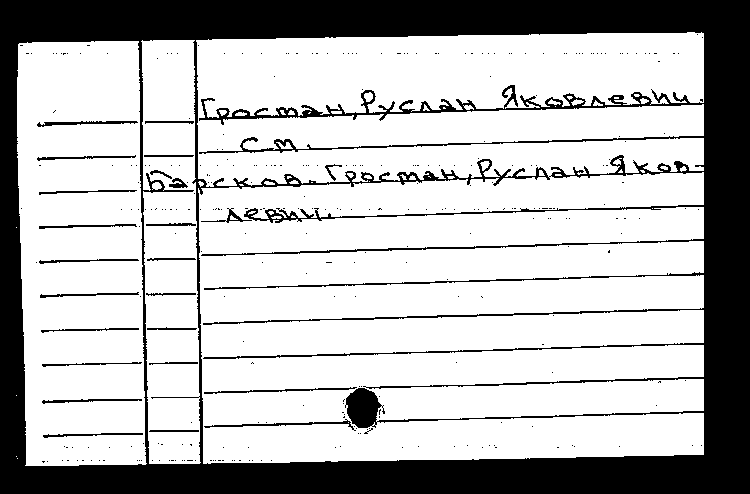 Гростан, Руслан Яковлевич.
см.
Барсков-Гростан, Руслан Яков-
левич.